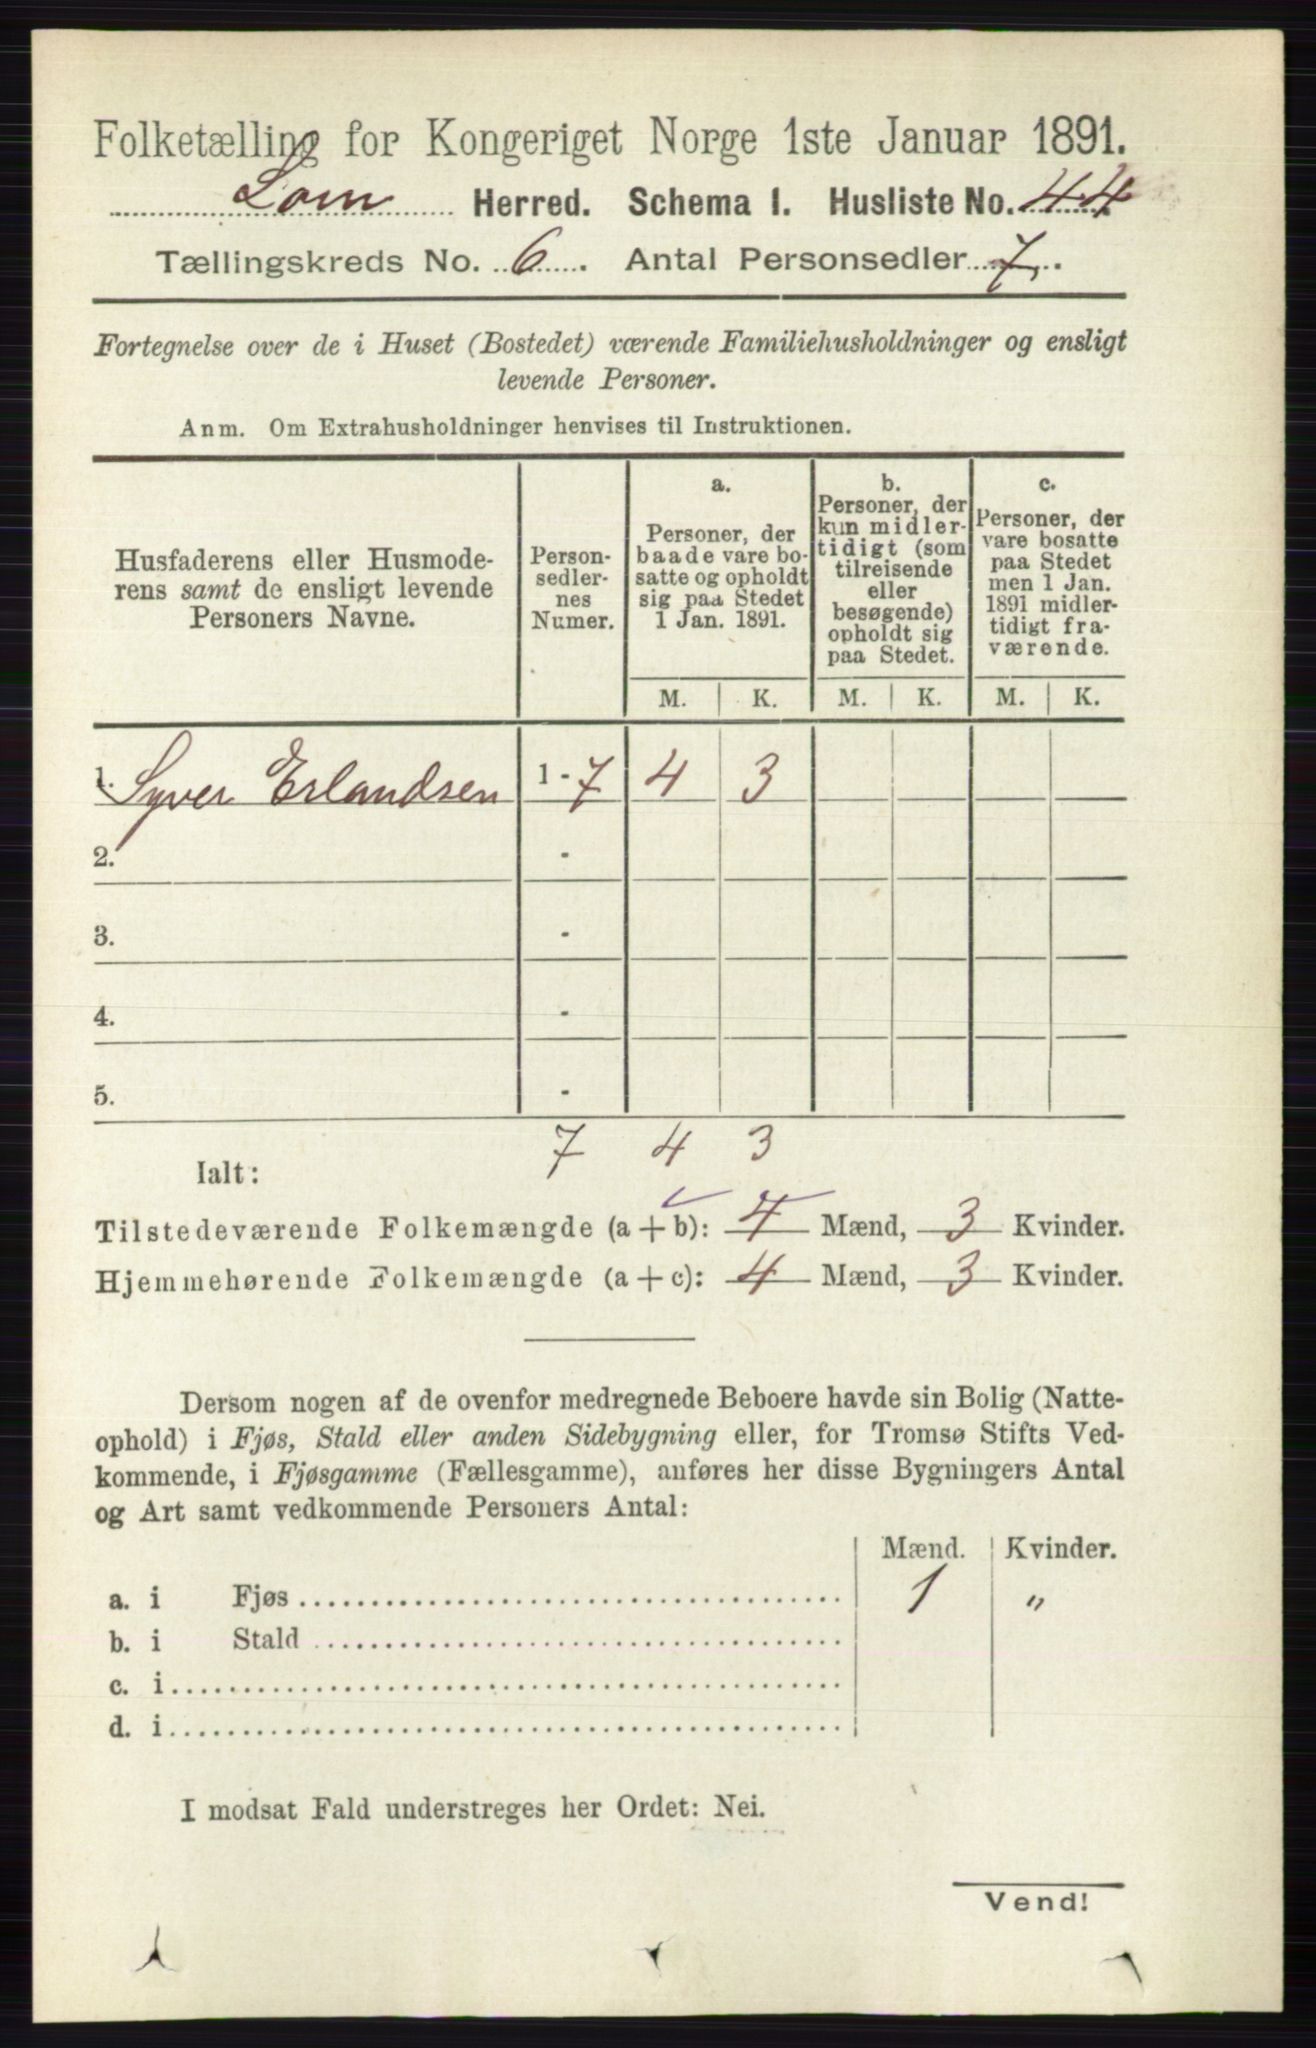 Folketælling for Kongeriget Norge 1ste Januar 1891.
Lom Herred. Schema I. Husliste No. 44
Tællingskreds No. 6. Antal Personsedler 7.
Fortegnelse over de i Huset (Bostedet) værende Familiehusholdninger og ensligt
levende Personer.
Anm. Om Extrahusholdninger henvises til Instruktionen.
Husfaderens eller Husmode-
rens samt de ensligt levende
Personers Navne.
Person-
sedler-
nes
Numer.
a.
Personer, der
baade vare bo-
satte og opholdt
sig paa Stedet
1 Jan. 1891.
b.
Personer, der
kun midler-
tidigt (som
tilreisende
eller
besøgende)
opholdt sig
paa Stedet.
c.
Personer, der
vare bosatte
paa Stedet
men 1 Jan.
1891 midler-
tidigt fra-
værende.
M. K. M. K. M. K.
1. Syver Erlandsen 1-7 4 3
2. -
3. -
4. -
5. -
7 4 3
Ialt:
Tilstedeværende Folkemængde (a + b): 4 Mænd, 3 Kvinder.
Hjemmehørende Folkemængde (a + c): 4 Mænd, 3 Kvinder.
Dersom nogen af de ovenfor medregnede Beboere havde sin Bolig (Natte-
ophold) i Fjøs, Stald eller anden Sidebygning eller, for Tromsø Stifts Ved-
kommende, i Fjøsgamme (Fællesgamme), anføres her disse Bygningers Antal
og Art samt vedkommende Personers Antal:
Mænd. Kvinder.
a. i Fjøs 1 "
b. i Stald
c. i
d. i
I modsat Fald understreges her Ordet: Nei.
Vend!